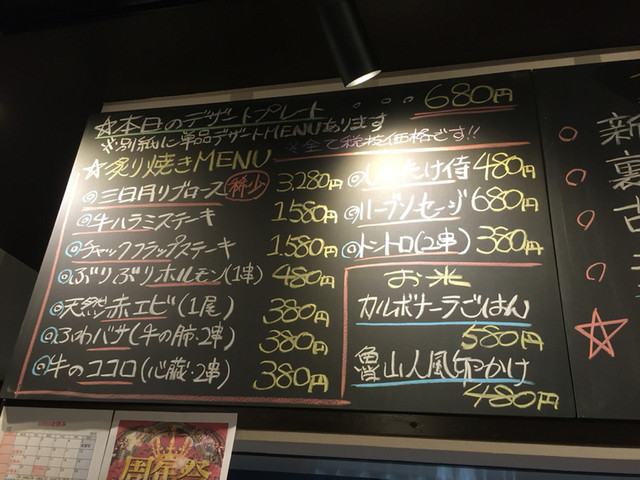 ☆本日のデザートプレート 。。。 680円
※別紙に単品デザートMENUあります
※全て税抜価格です!!
☆炙り焼きMENU
◎三日月リブロース 稀少 3.280円
◎牛ハラミステーキ 1.580円
◎チャックフラップステーキ 1.580円
◎ぶりぶりホルモン(1串) 480円
◎天然赤エビ(1尾) 380円
◎ふわバサ(牛の肺・2串) 380円
◎牛のココロ(心臓・2串) 380円
◎しいたけ侍 480円
◎ハーブソーセージ 680円
◎トントロ(2串) 380円
お米
カルボナーラごはん
580円
山人風卵かけ
480円
新
裏
周年祭